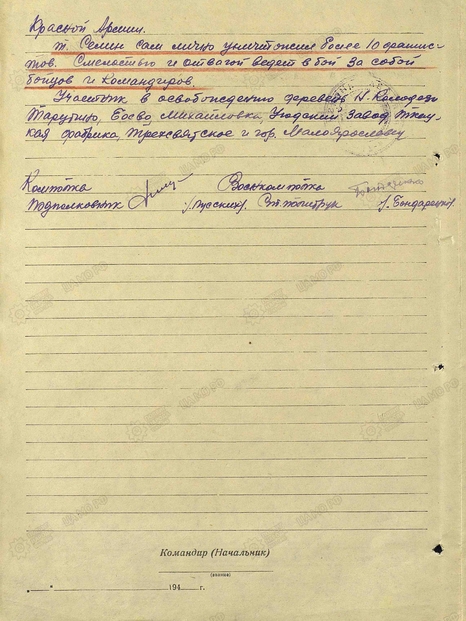 Красной Армии.
т. Семин сам лично уничтожил более 10 фашис-
тов. Смелостью и отвагой ведет в бой за собой
бойцов и командиров.
Участник в освобождению деревень Н. Колодези
Тарутино, Еосво Михайловка, Угодский Завод Ткац-
кая фабрика, Трехсвятское и гор. Малоярославец
Комполка Военком полка
Подполковник /Русских/. Ст. политрук /. Бондарецкий/.
Командир (Начальник)
(звание)
" " 194 г.